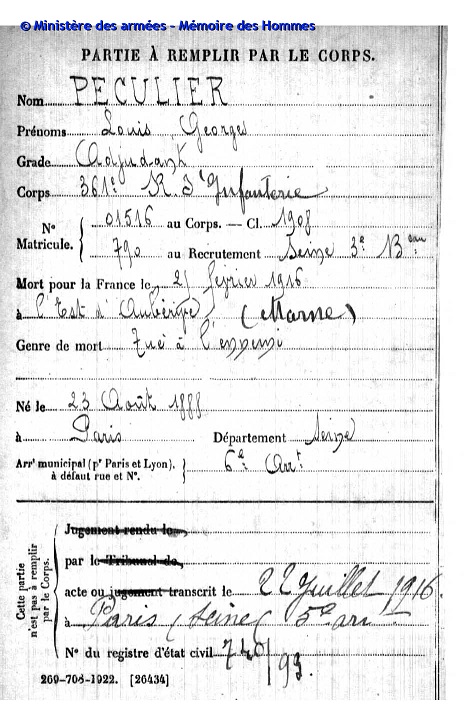 © Ministère des armées - Mémoire des Hommes
PARTIE À REMPLIR PAR LE CORPS.
Nom PECULIER
Prénoms Louis Georges
Grade Adjudant
Corps 361e R. d'Infanterie
N° Matricule. { 01516 au Corps. — Cl. 1908
790 au Recrutement Seine 3e Beau
Mort pour la France le 25 février 1916
à l'Est d'Aubérive (Marne)
Genre de mort Tué à l'ennemi
Né le 23 Août 1888
à Paris Département Seine
Arrt municipal (pr Paris et Lyon), à défaut rue et N°. } 6e Arrt
Cette partie n'est pas à remplir par le Corps.
Jugement rendu le
par le Tribunal de
acte ou jugement transcrit le 22 Juillet 1916.
à Paris (Seine) 5e arr
N° du registre d'état civil 740/93.
269-708-1922. [26434]